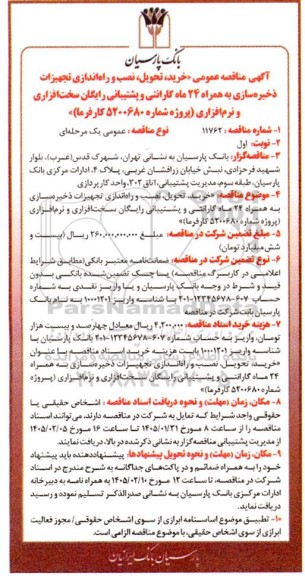 بانک پارسیان
آگهی مناقصه عمومی «خرید، تحویل، نصب و راه‌اندازی تجهیزات
ذخیره‌سازی به همراه ۲۴ ماه گارانتی و پشتیبانی رایگان سخت‌افزاری
و نرم‌افزاری (پروژه شماره ۵۲۰۰۶۸۰ کارفرما)»
۱- شماره مناقصه : ۱۱۷۶۲ نوع مناقصه : عمومی یک مرحله‌ای
۲- نوبت: اول
۳- مناقصه‌گزار: بانک پارسیان به نشانی تهران، شهرک قدس(غرب)، بلوار
شهید فرحزادی، نبش خیابان زرافشان غربی، پلاک ۴، ادارات مرکزی بانک
پارسیان، طبقه سوم، مدیریت پشتیبانی، اتاق ۳۰۲، واحد کارپردازی
۴- موضوع مناقصه: «خرید، تحویل، نصب و راه‌اندازی تجهیزات ذخیره‌سازی
به همراه ۲۴ ماه گارانتی و پشتیبانی رایگان سخت‌افزاری و نرم‌افزاری
(پروژه شماره ۵۲۰۰۶۸۰ کارفرما)»
۵- مبلغ تضمین شرکت در مناقصه: مبلغ ۲۶۰,۰۰۰,۰۰۰,۰۰۰ ریال (بیست و
شش میلیارد تومان)
۶- نوع تضمین شرکت در مناقصه: ضمانت‌نامه معتبر بانکی(مطابق شرایط
اعلامی در کاربرگ مناقصه) یا چک تضمین‌شده بانکی بدون
قید و شرط در وجه بانک پارسیان و یا واریز نقدی به شماره
حساب ۶۰۷-۱۲۳۴۵۶۷۸-۲۰۱ با شناسه واریز ۱۰۰۰۱۲۰۱ به نام بانک
پارسیان بابت شرکت در مناقصه
۷- هزینه خرید اسناد مناقصه: ۴,۲۰۰,۰۰۰ ریال معادل چهارصد و بیست هزار
تومان، واریز به حساب شماره ۶۰۷-۱۲۳۴۵۶۷۸-۲۰۱ بانک پارسیان با
شناسه واریز ۱۰۰۰۱۲۰۱ بابت هزینه خرید اسناد مناقصه با عنوان
«خرید، تحویل، نصب و راه‌اندازی تجهیزات ذخیره‌سازی به همراه
۲۴ ماه گارانتی و پشتیبانی رایگان سخت‌افزاری و نرم‌افزاری (پروژه
شماره ۵۲۰۰۶۸۰ کارفرما)»
۸- مکان، زمان (مهلت) و نحوه دریافت اسناد مناقصه : اشخاص حقیقی یا
حقوقی واجد شرایط که تمایل به شرکت در مناقصه دارند، می‌توانند اسناد
مناقصه را از ساعت ۸ مورخ ۱۴۰۵/۰۱/۳۱ تا ساعت ۱۶ مورخ ۱۴۰۵/۰۲/۰۵
از مدیریت پشتیبانی مناقصه‌گزار به نشانی ذکر شده در بالا، دریافت نمایند.
۹- مکان، زمان (مهلت) و نحوه تحویل پیشنهادها: پیشنهاددهنده باید پیشنهاد
خود را به همراه ضمائم و در پاکت‌های جداگانه به شرح مندرج در اسناد
شرکت در مناقصه، تا ساعت ۱۲ مورخ ۱۴۰۵/۰۲/۱۰ به همراه نامه به دبیرخانه
ادارات مرکزی بانک پارسیان به نشانی صدرالذکر تسلیم نموده و رسید
دریافت نماید.
۱۰- تطبیق موضوع اساسنامه ابرازی از سوی اشخاص حقوقی/ مجوز فعالیت
ابرازی از سوی اشخاص حقیقی، با موضوع مناقصه الزامی است.
پارسیان بانک ایرانیان